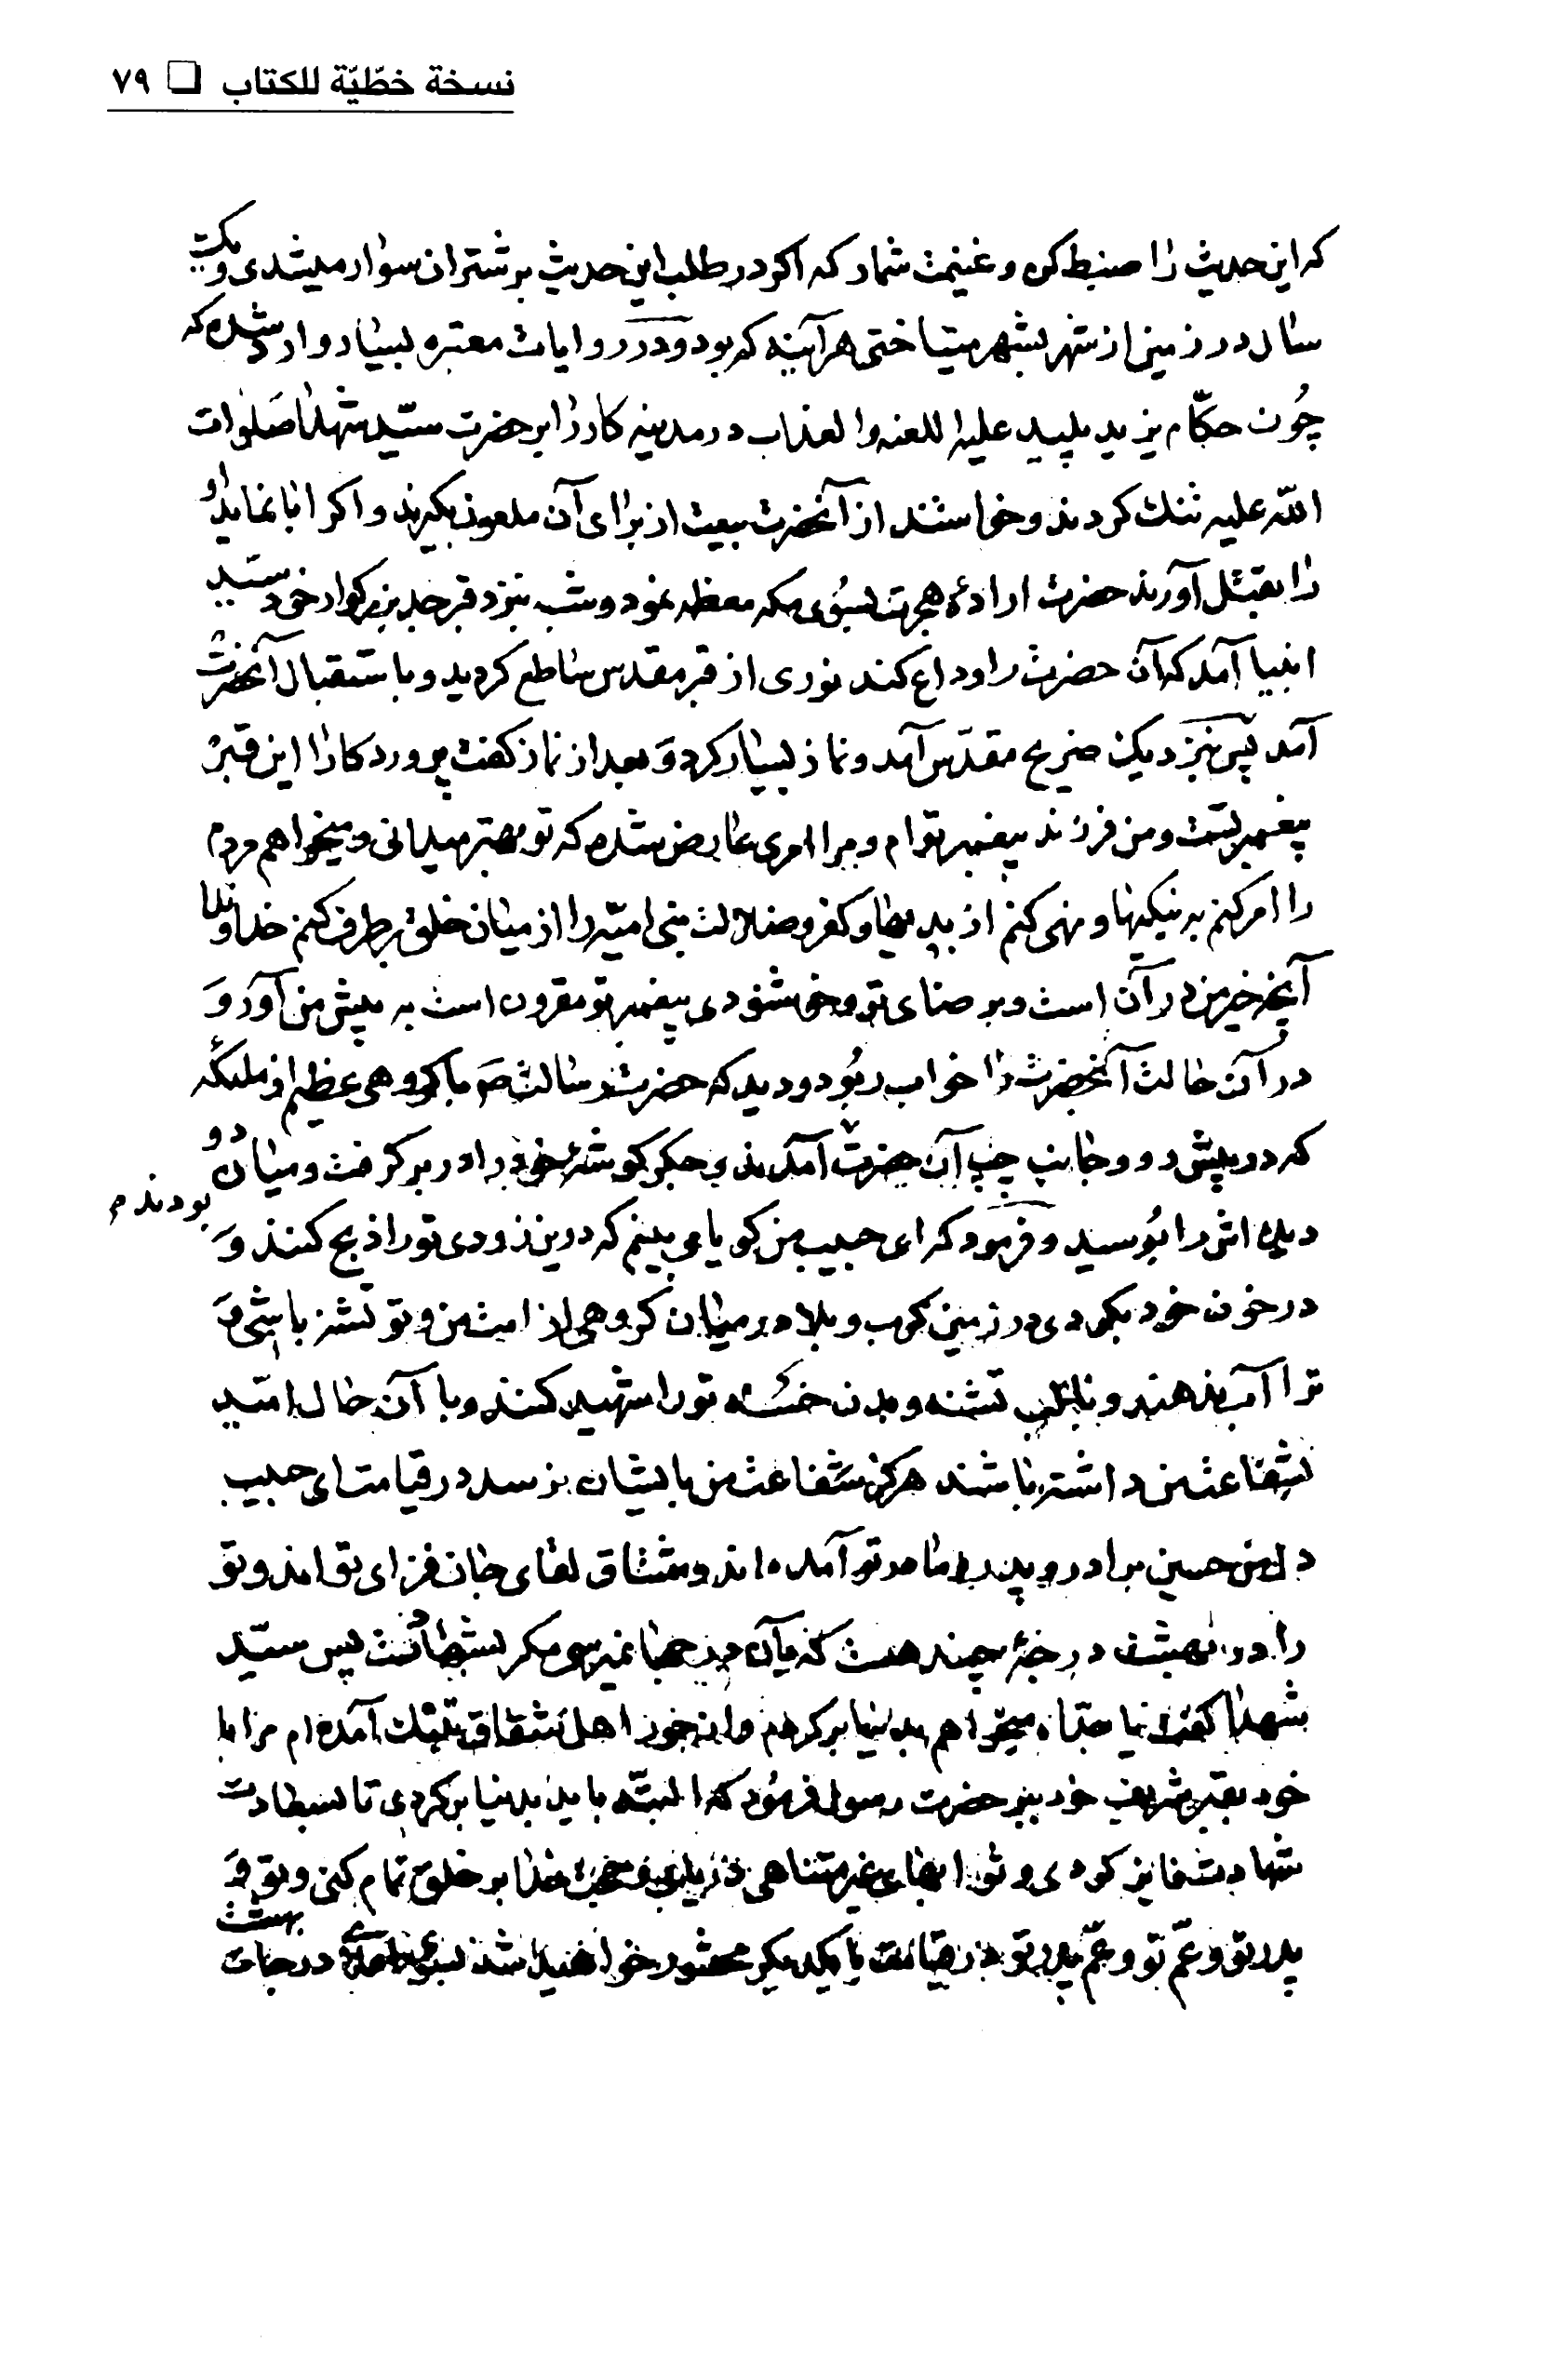 نسخة خطّيّة للكتاب ❏ ٧٩
که این حدیث را ضبط کن و غنیمت شمار که اکر در طلب این حدیث بر شتران سوار میشدی و یکت
سال در زمین از شهر بشهر میتاختی هر آینه کم بود و در روایات معتبره بسیار وارد شده که
چُون حکّام یزید پلید علیه اللعنه والعذاب در مدینه کار را بر حضرت سیّد شهدا صَلوات
اللّه علیه تنک کردند و خواستند از آنحضرت بیعت از برای آن ملعون بکیرند و اکر ابا نماید او
را بقتل آورند حضرت ارادهٔ هجرت بسُوی مکه معظمه نمود و شب بنزد قبر جد بزرکوار خود سیّد
انبیا آمد که آن حضرت را وداع کند نوری از قبر مقدس ساطع کردید و باستقبال آنحضرت
آمد پس بنزدیک ضریح مقدّس آمد و نماز بسیار کرد وَ بعد از نماز کفت پرورد کارا این قبر
پیغمبر تست و من فرزند پیغمبر توام و مرا امری عارض شده که تو بهتر میدانی و میخواهم مردم
را امر کنم به نیکیها و نهی کنم از بدیها و کفر و ضلالت بنی امیّه را از میان خلق برطرف کنم خداوندا
آنچه خیر من در آن است و بر ضای تو و خوشنودی پیغمبر تو مقرون است به پیش من آور وَ
در آن حالت آنحضرت را خواب ربُود و دید که حضرت رسالت صَ با کروهی عظیم از ملئکه
که در پیش رو و جانب آن حضرت آمدند و جکر کوشهٔ خود را در بر کرفت و میان دو
بودند م
دیده اش را بُوسید و فرمود که ای حبیب من کویا می بینم که درین زودی تو را ذبح کنند وَ
در خون خود بکردی در زمین کرب و بلا در میان کروهی از امت من و تو تشنه باشی وَ
ترا آب ندهند و بالب تشنه و بدن خسته تو را شهید کنند و با آن حال امّید
بشفاعت من داشته باشند هرکز شفاعت من بایشان نرسد در قیامت ای حبیب
دل من حسین برادر و پدر و مادر تو آمده اند و مشتاق لقای جان فزای تو اند و تو
را در بهشت درجهٔ چند هست که بآن درجها نمیرسی مکر بشهادت پس سیّد
شهدا کفت یا جدّاه میخواهم بدنیا برکردم و از جور اهل شقاق بتنک آمده ام مرا با
خود بقبر شریف خود ببر حضرت رسول فرمُود که البتّه باید بدنیا برکردی تا بسعادت
شهادت فایز کردی و ثوابهای غیر متناهی دریابی و حجت خدا بر خلق تمام کنی و تو وَ
پدر تو و عمّ تو و عمّ پدر تو در قیامت با یکدیکر محشور خواهید شد بسوی درجات
بهشت